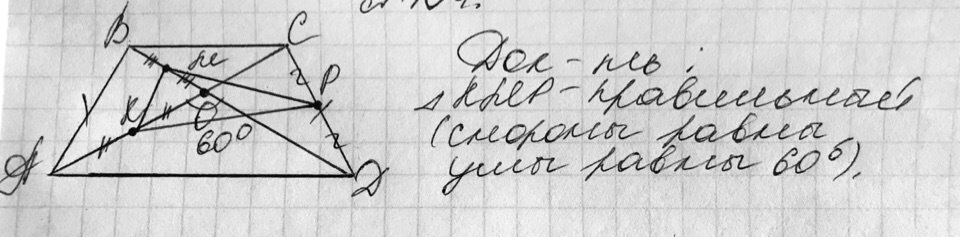 B
C
м
Док-ть:
P
△ КМР-правильный
К
О
(стороны равны
60°
углы равны 60°).
А
D